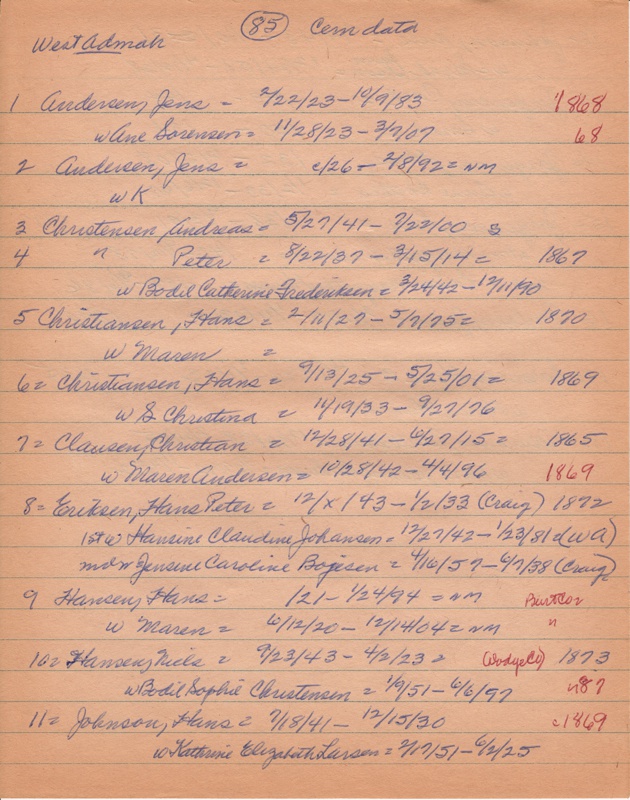 85 Cem data
West Admah
1 Andersen, Jens = 2/22/23 – 10/9/83 1868
w Ane Sorensen = 11/28/23 – 3/7/07 68
2 Andersen, Jens = c/26 – 2/8/92 = NM
w K
3 Christensen, Andreas = 5/27/41 – 7/22/00 S
4 " Peter = 8/22/37 – 3/15/14 = 1867
w Bodil Catherine Frederiksen = 3/24/42 – 12/11/90
5 Christiansen, Hans = 2/11/27 – 5/7/75 = 1870
w Maren =
6 = Christiansen, Hans = 9/13/25 – 5/25/01 = 1869
w S Christina = 11/19/33 – 9/27/76
7 = Clausen, Christian = 12/28/41 – 6/27/15 = 1865
w Maren Andersen = 10/28/42 – 4/4/96 1869
8 = Eriksen, Hans Peter = 12/x/43 – 1/2/33 (Craig) 1872
1st w Hansine Claudine Johansen = 12/27/42 – 1/23/81 d (WA)
mdw Jensene Caroline Bojesen = 4/16/57 – 6/7/38 (Craig)
9 Hansen, Hans = /21 – 1/24/94 = NM Burt Co
w Maren = 6/12/20 – 12/14/04 = NM "
10 = Hansen, Niels = 9/23/43 – 4/2/23 = (Dodge Co) 1873
w Bodil Sophie Christensen = 1/9/51 – 6/6/97 87
11 = Johnson, Hans = 7/18/41 – 12/15/30 c1869
w Kathrine Elizabeth Larsen = 2/17/51 – 6/2/25